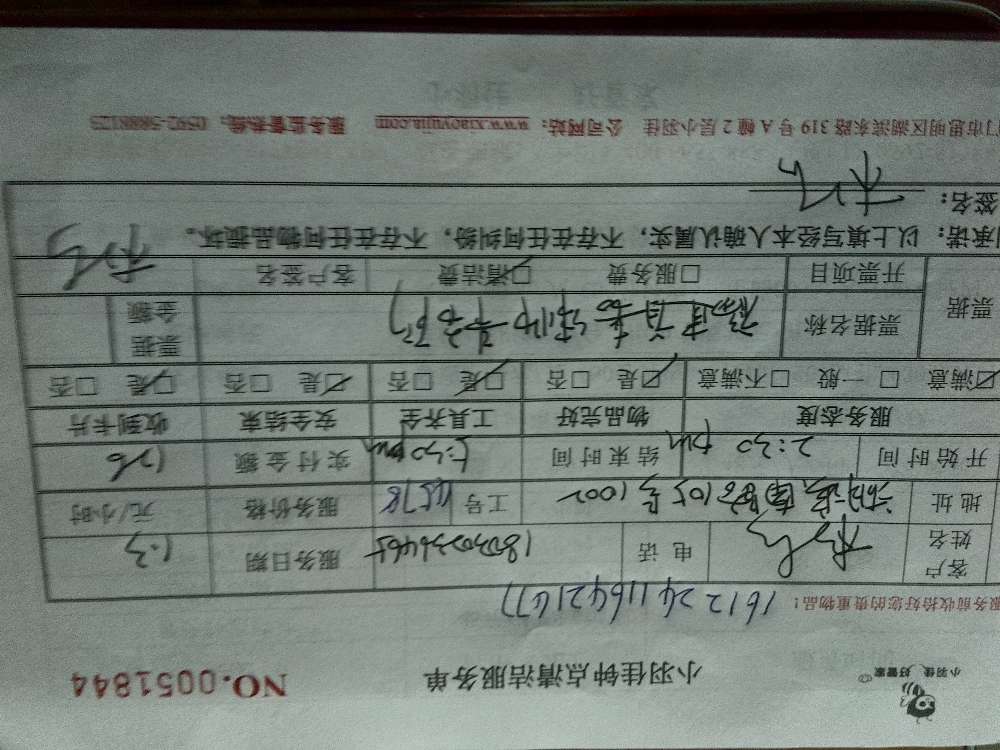 小羽佳 好管家
小羽佳钟点清洁服务单
NO.0051844
服务前收拾好您的贵重物品！
客户姓名 电话 服务日期 1.3
地址 工号 服务价格 元/小时
开始时间 2:30 pm 结束时间 5:30 pm 实付金额
服务态度 物品完好 工具齐全 安全结束 收到卡片
☑满意 □一般 □不满意 ☑是 □否 ☑是 □否 ☑是 □否 ☑是 □否
票据 票据名称 票据金额
开票项目 □服务费 ☑清洁费 客户签名
承诺：以上填写经本人确认属实，不存在任何纠纷，不存在任何物品损坏。
签名：
门市思明区湖滨东路319号A幢2层小羽佳 公司网站：www.xiaoyujia.com 服务监督热线：0592-5888123